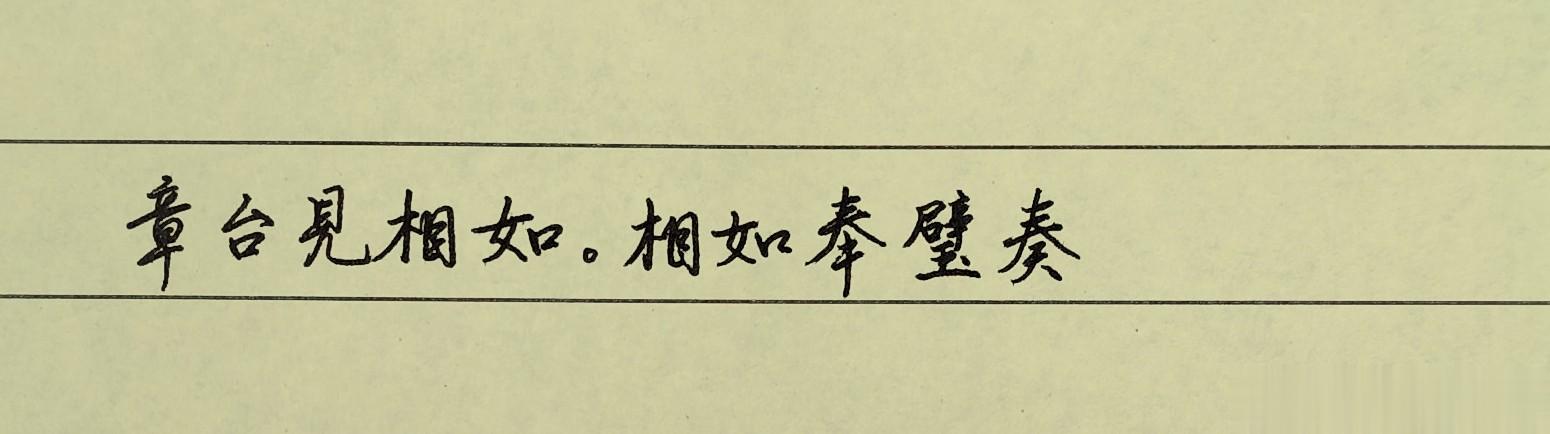 章台見相如。相如奉璧奏